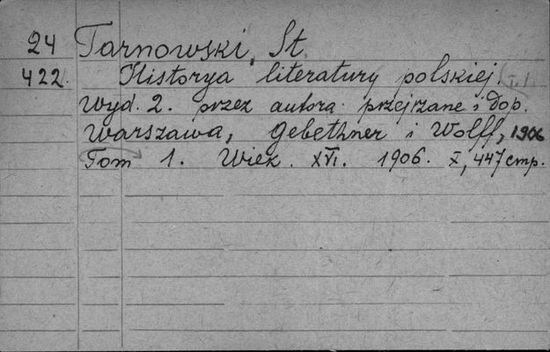 24 Tarnowski, St.
422. Historya literatury polskiej.
wyd. 2. przez autora przejrzane i dop.
Warszawa, Gebethner i Wolff, 1906
Tom 1. Wiek. XVI. 1906. X, 447 стр.